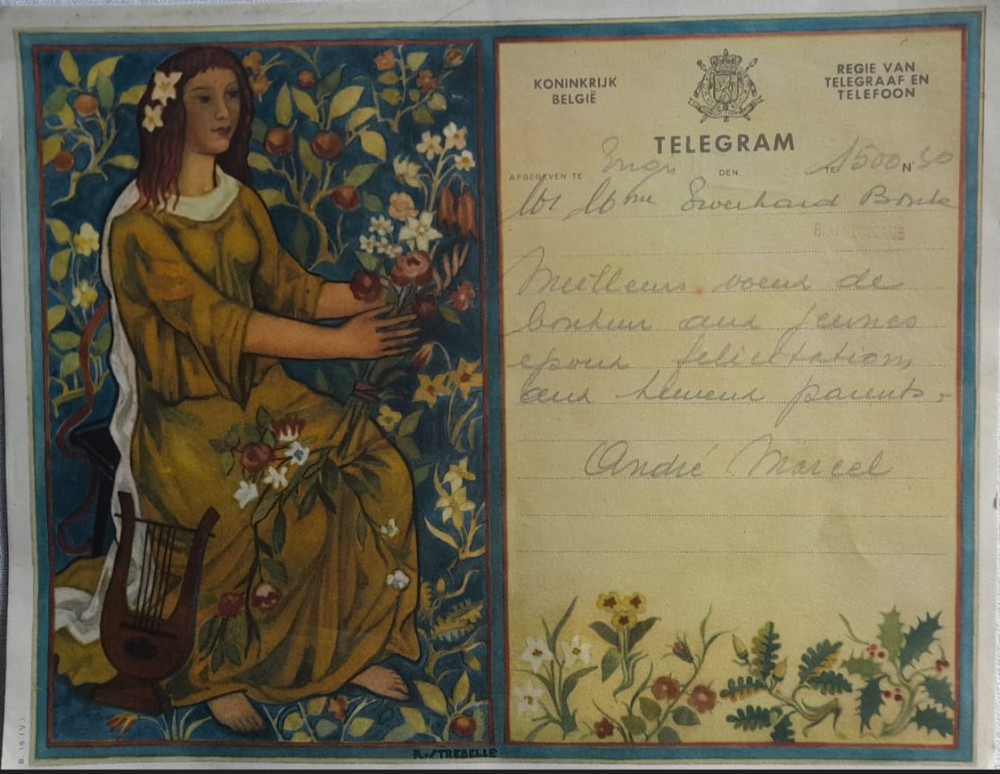 KONINKRIJK
BELGIË
REGIE VAN
TELEGRAAF EN
TELEFOON
TELEGRAM
AFGEGEVEN TE
DEN
1500 N° 30
Mr Mme
Meilleurs voeux de
bonheur aux jeunes
epoux felicitations
aux heureux parents =
André Marcel
R. STREBELLE
B. 15 (V.)